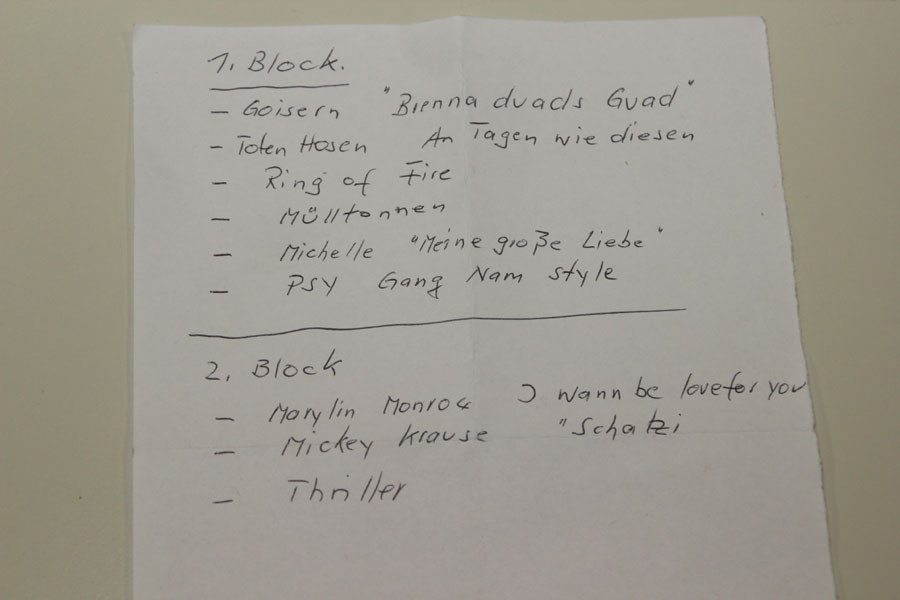 1. Block.
- Goisern "Brenna duads Guad"
- Toten Hosen An Tagen wie diesen
- Ring of Fire
- Mülltonnen
- Michelle "Meine große Liebe"
- PSY Gang Nam style
2. Block
- Marylin Monroe I wann be love for you
- Mickey Krause "Schatzi
- Thriller